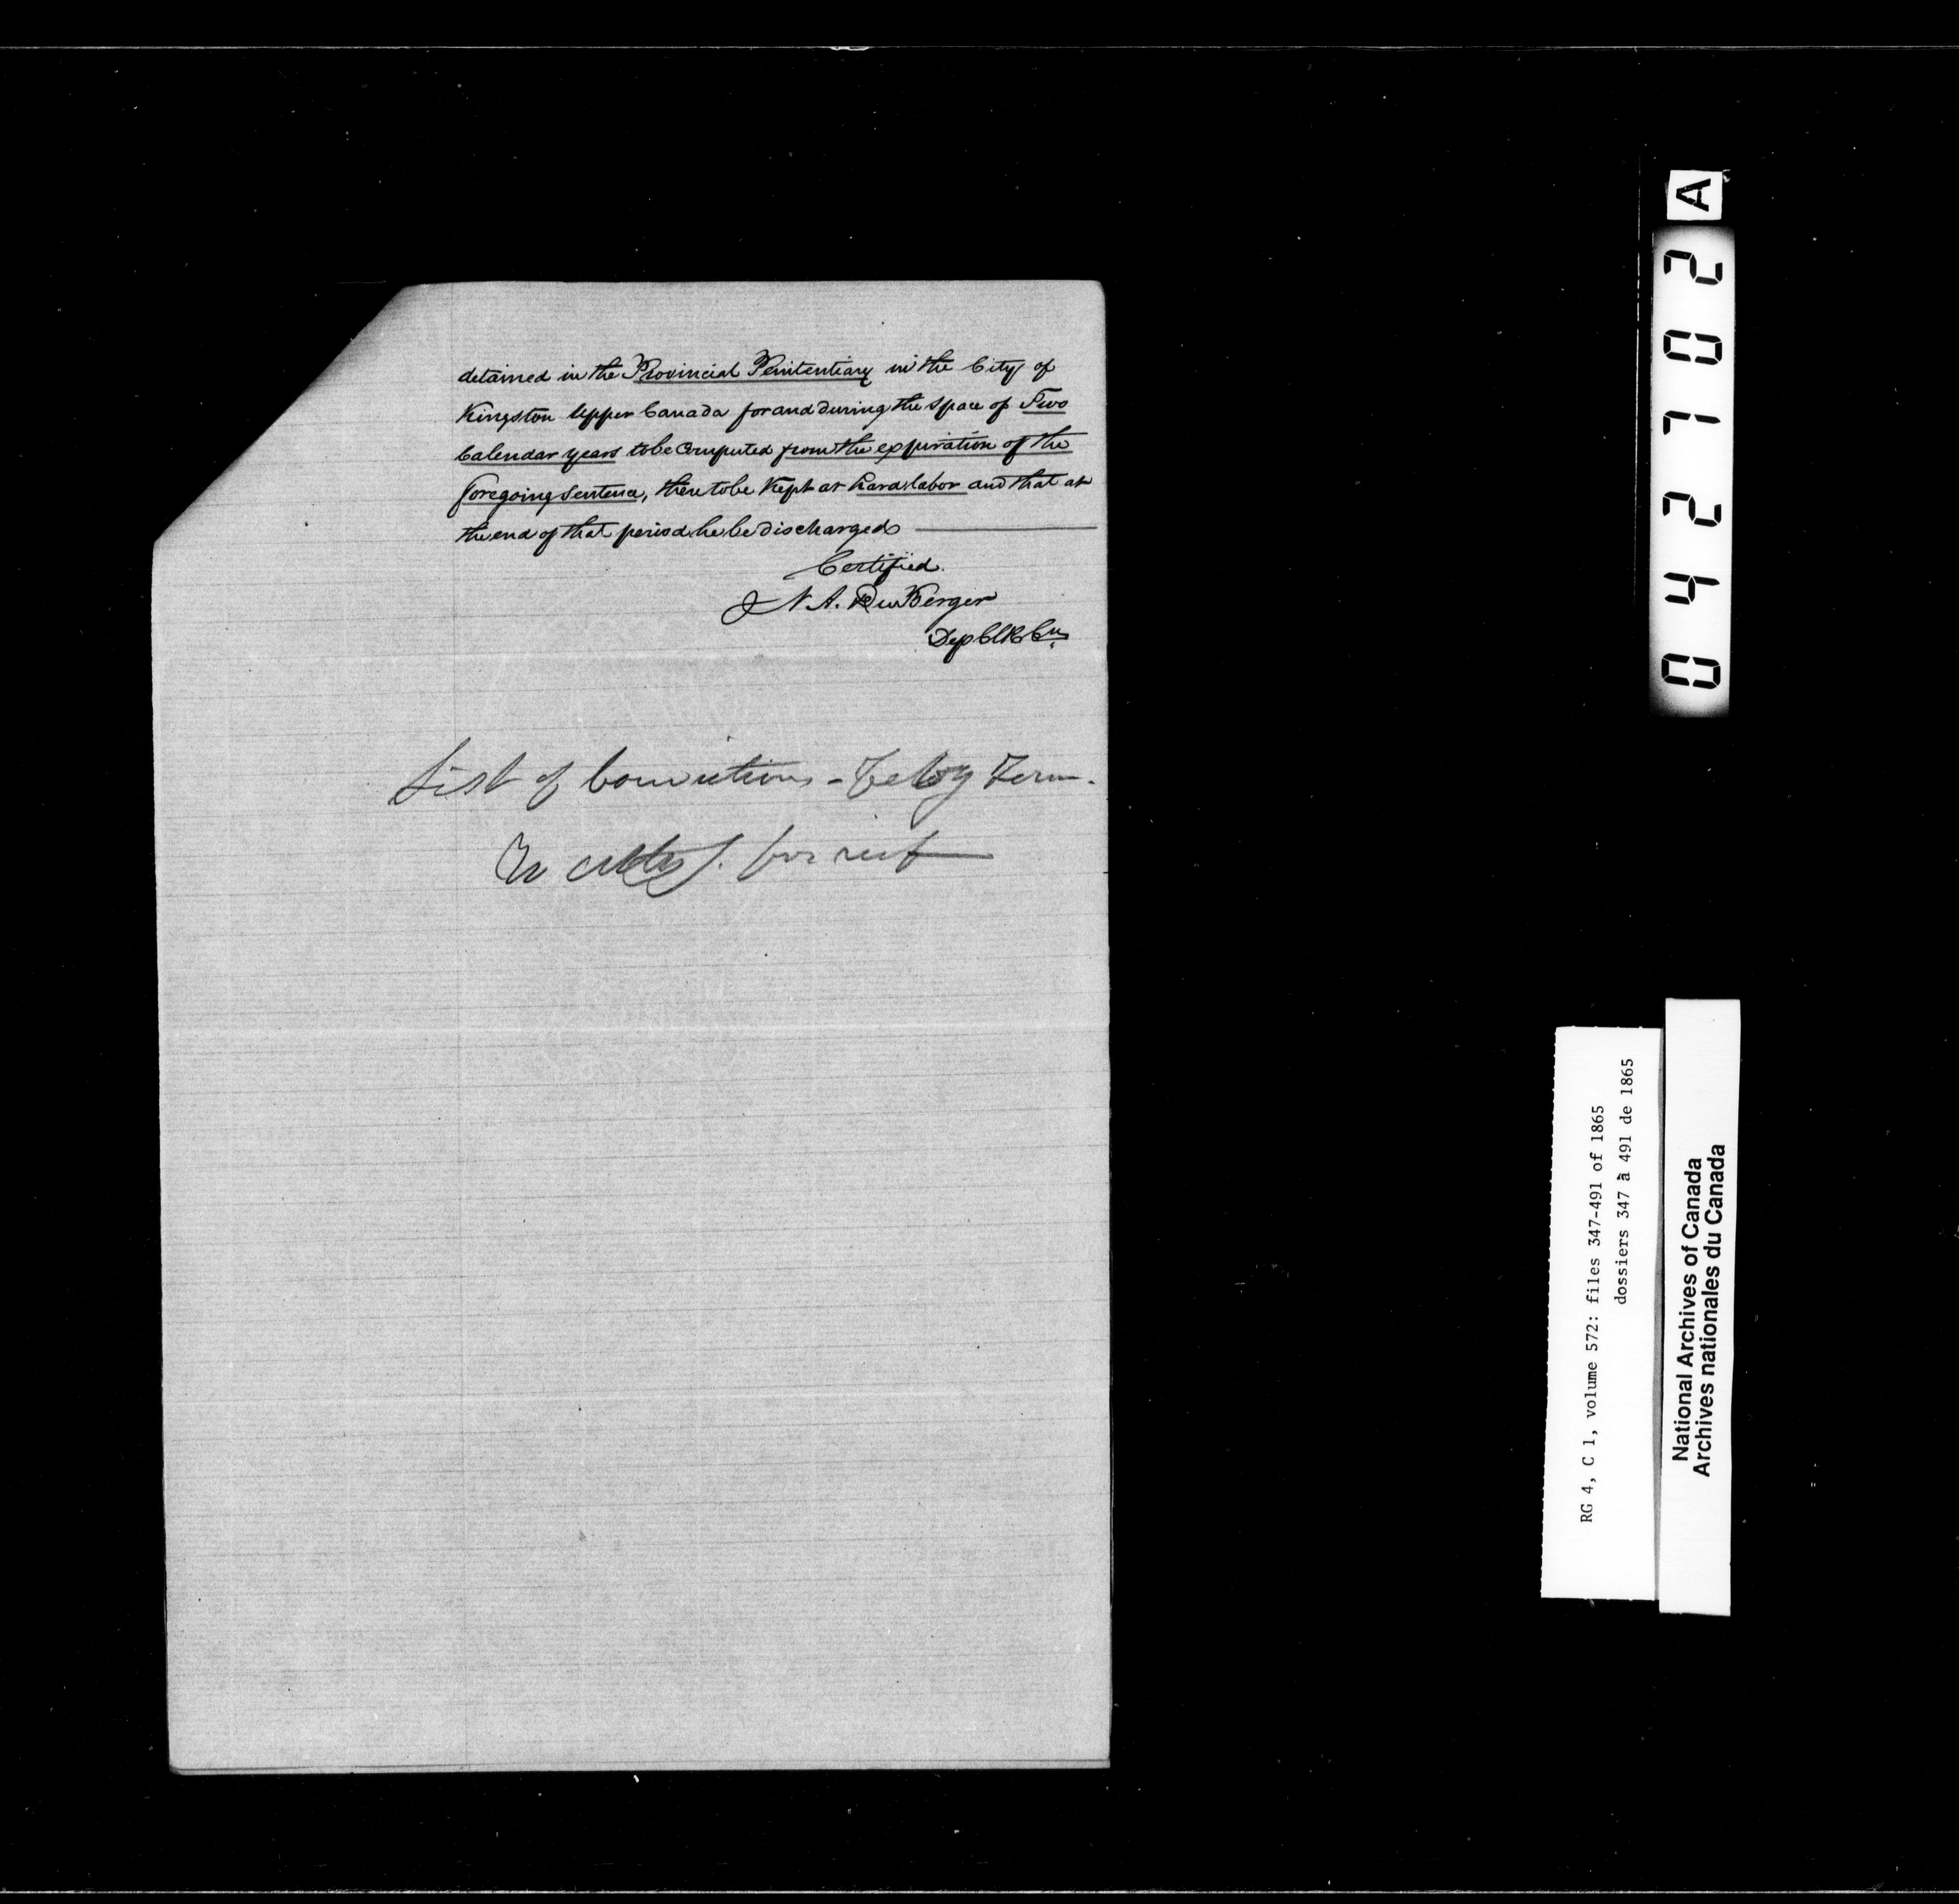 detained in the Provincial Penitentiary in the City of
Kingston Upper Canada for and during the space of Two
Calendar years to be computed from the expiration of the
foregoing sentence, there to be kept at hard labor and that at
the end of that period he be discharged
Certified.
N. A. DuBerger
Dep Clk Cn
List of Convictions - Feby Term.
correct
042702 A
RG 4, C 1, volume 572: files 347-491 of 1865
dossiers 347 à 491 de 1865
National Archives of Canada
Archives nationales du Canada